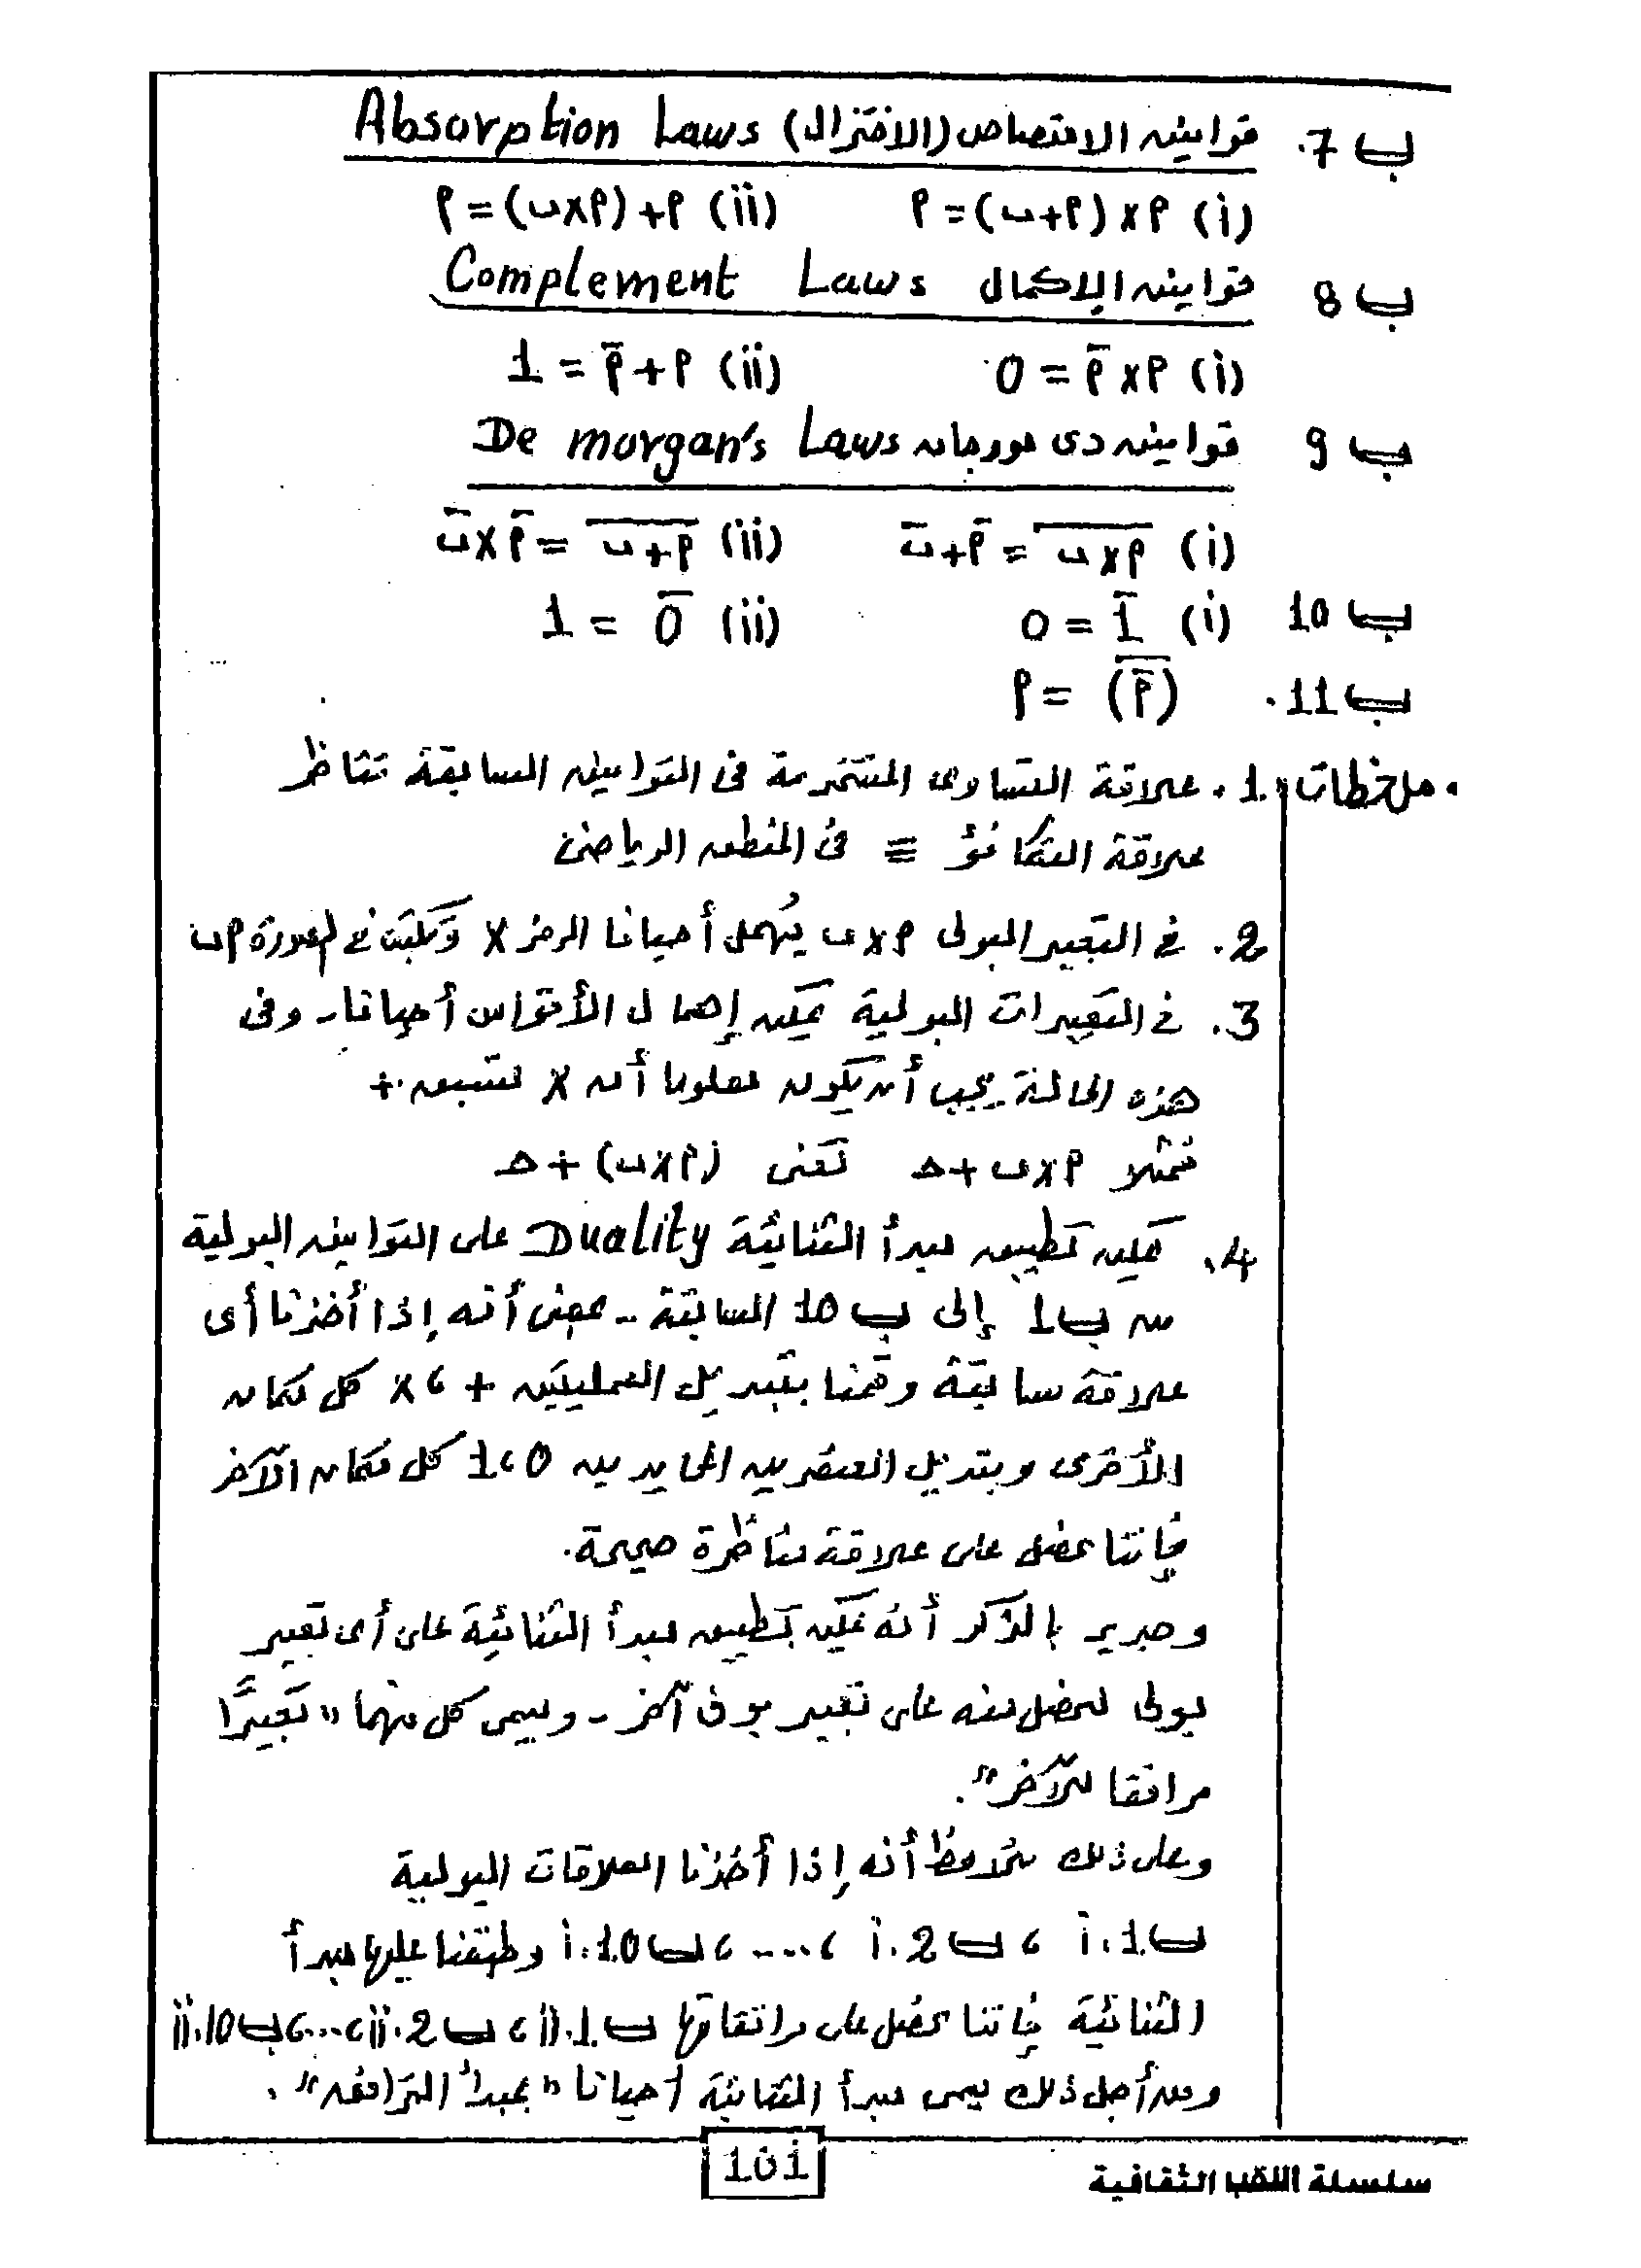 ب 7. قوانين الامتصاص (الاختزال) Absorption Laws
(i) م × (م + ب) = م (ii) م + (م × ب) = م
ب 8 قوانين الإكمال Complement Laws
(i) م × م̄ = 0 (ii) م + م̄ = 1
ب 9 قوانين دى مورجان De morgan's Laws
(i) <span style="text-decoration:overline">م × ب</span> = م̄ + ب̄ (ii) <span style="text-decoration:overline">م + ب</span> = م̄ × ب̄
ب 10 (i) 1̄ = 0 (ii) 0̄ = 1
ب 11. <span style="text-decoration:overline">(م̄)</span> = م
. ملاحظات: 1. علاقة التساوى المستخدمة فى القوانين السابقة تناظر
علاقة التكافؤ ≡ فى المنطق الرياضى
2. فى التعبير البولى م × ب يُهمل أحيانا الرمز × وتكتب فى الصورة م ب
3. فى التعبيرات البولية يمكن إهمال الأقواس أحيانا - وفى
هذه الحالة يجب أن يكون معلوما أن × تسبق +
فمثلا م × ب + حـ تعنى (م × ب) + حـ
4. يمكن تطبيق مبدأ الثنائية Duality على القوانين البولية
من ب 1 إلى ب 10 السابقة - بمعنى أنه إذا أخذنا أى
علاقة سابقة وقمنا بتبديل العمليتين + ، × كل مكان
الأخرى وبتديل العنصرين المحايدين 0 ، 1 كل مكان الآخر
فإننا نحصل على علاقة مناظرة صحيحة.
وجدير بالذكر أنه يمكن تطبيق مبدأ الثنائية على أى تعبير
بولى لنحصل منه على تعبير بولى آخر - ويسمى كل منهما "تعبيرًا
مرافقا للآخر".
وعلى ذلك نلاحظ أنه إذا أخذنا العلاقات البولية
ب 1.i ، ب 2.i ، .... ، ب 10.i وطبقنا عليها مبدأ
الثنائية فإننا نحصل على مرافقاتها ب 1.ii ، ب 2.ii ، ... ، ب 10.ii
ومن أجل ذلك يسمى مبدأ الثنائية أحيانا "بمبدأ الترافق".
101
سلسلة اللقب الثقافية